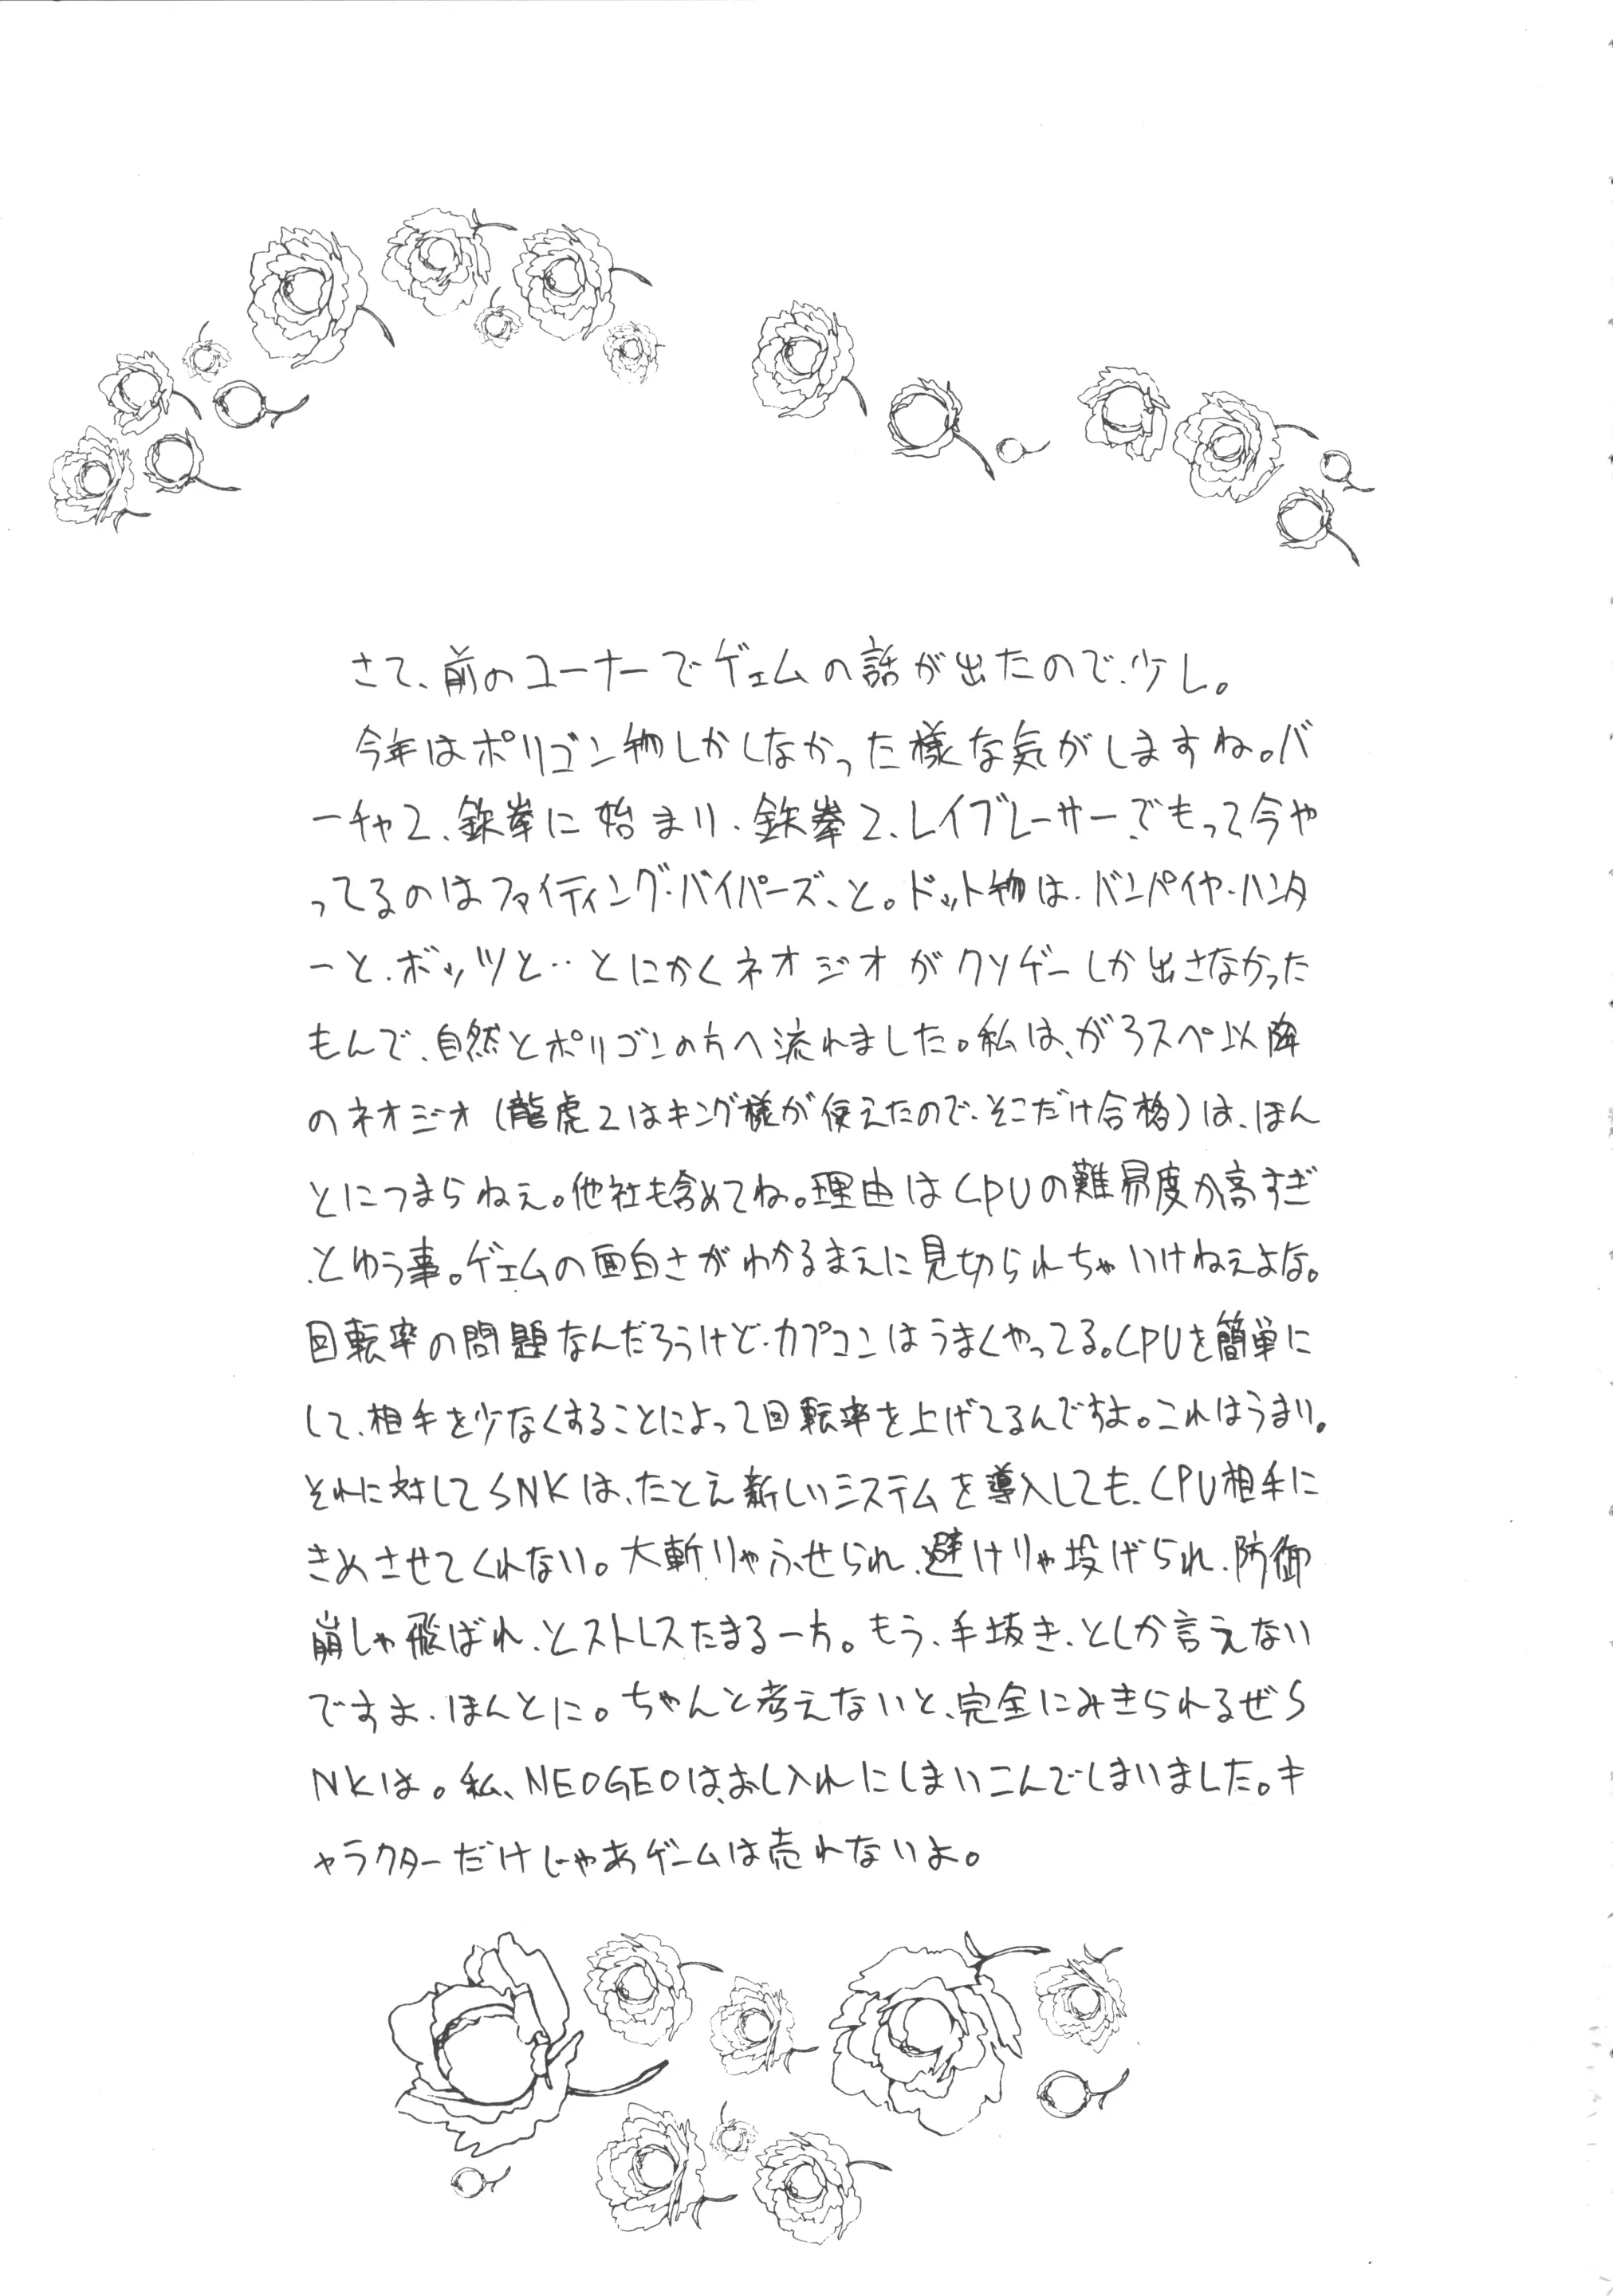 さて、前のコーナーでゲェムの話が出たので、少し。
今年はポリゴン物しかしなかった様な気がしますね。バ
ーチャ2、鉄拳に始まり、鉄拳2、レイブレーサー、でもって今や
ってるのはファイティング・バイパーズ、と。ドット物は、バンパイヤ・ハンタ
ーと、ボッツと‥とにかくネオジオがクソゲーしか出さなかった
もんで、自然とポリゴンの方へ流れました。私は、がろスペ以降
のネオジオ(龍虎2はキング様が使えたので、そこだけ合格)は、ほん
とにつまらねえ。他社も含めてね。理由はCPUの難易度が高すぎ
、とゆう事。ゲェムの面白さがわかるまえに見切られちゃいけねえよな。
回転率の問題なんだろうけど、カプコンはうまくやってる。CPUを簡単に
して、相手を少なくすることによって回転率を上げてるんですよ。これはうまい。
それに対してSNKは、たとえ新しいシステムを導入しても、CPU相手に
きめさせてくれない。大斬りゃふせられ、避けりゃ投げられ、防御
崩しゃ飛ばれ、とストレスたまる一方。もう、手抜き、としか言えない
ですよ、ほんとに。ちゃんと考えないと、完全にみきられるぜS
NKは。私、NEOGEOは、おし入れにしまいこんでしまいました。キ
ャラクターだけじゃあゲームは売れないよ。